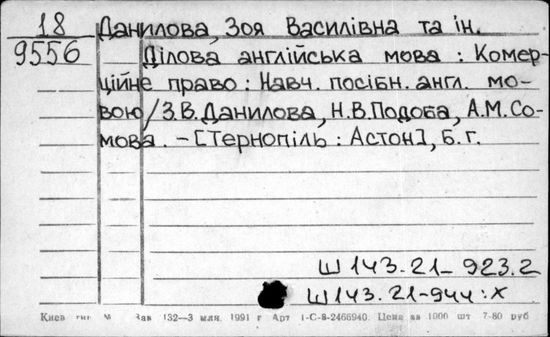 18 Данилова, Зоя Василівна та ін.
9556 Ділова англійська мова : Комер-
ційне право : Навч. посібн. англ. мо-
вою / З.В. Данилова, Н.В. Подоба, А.М. Со-
мова. – [Тернопіль : Астон], б. г.
Ш 143.21-923.2
Ш 143.21-944:Х
Киев тип № Зак 132—3 млн. 1991 г Арт 1-С-8-2466940. Цена за 1000 шт 7-80 руб